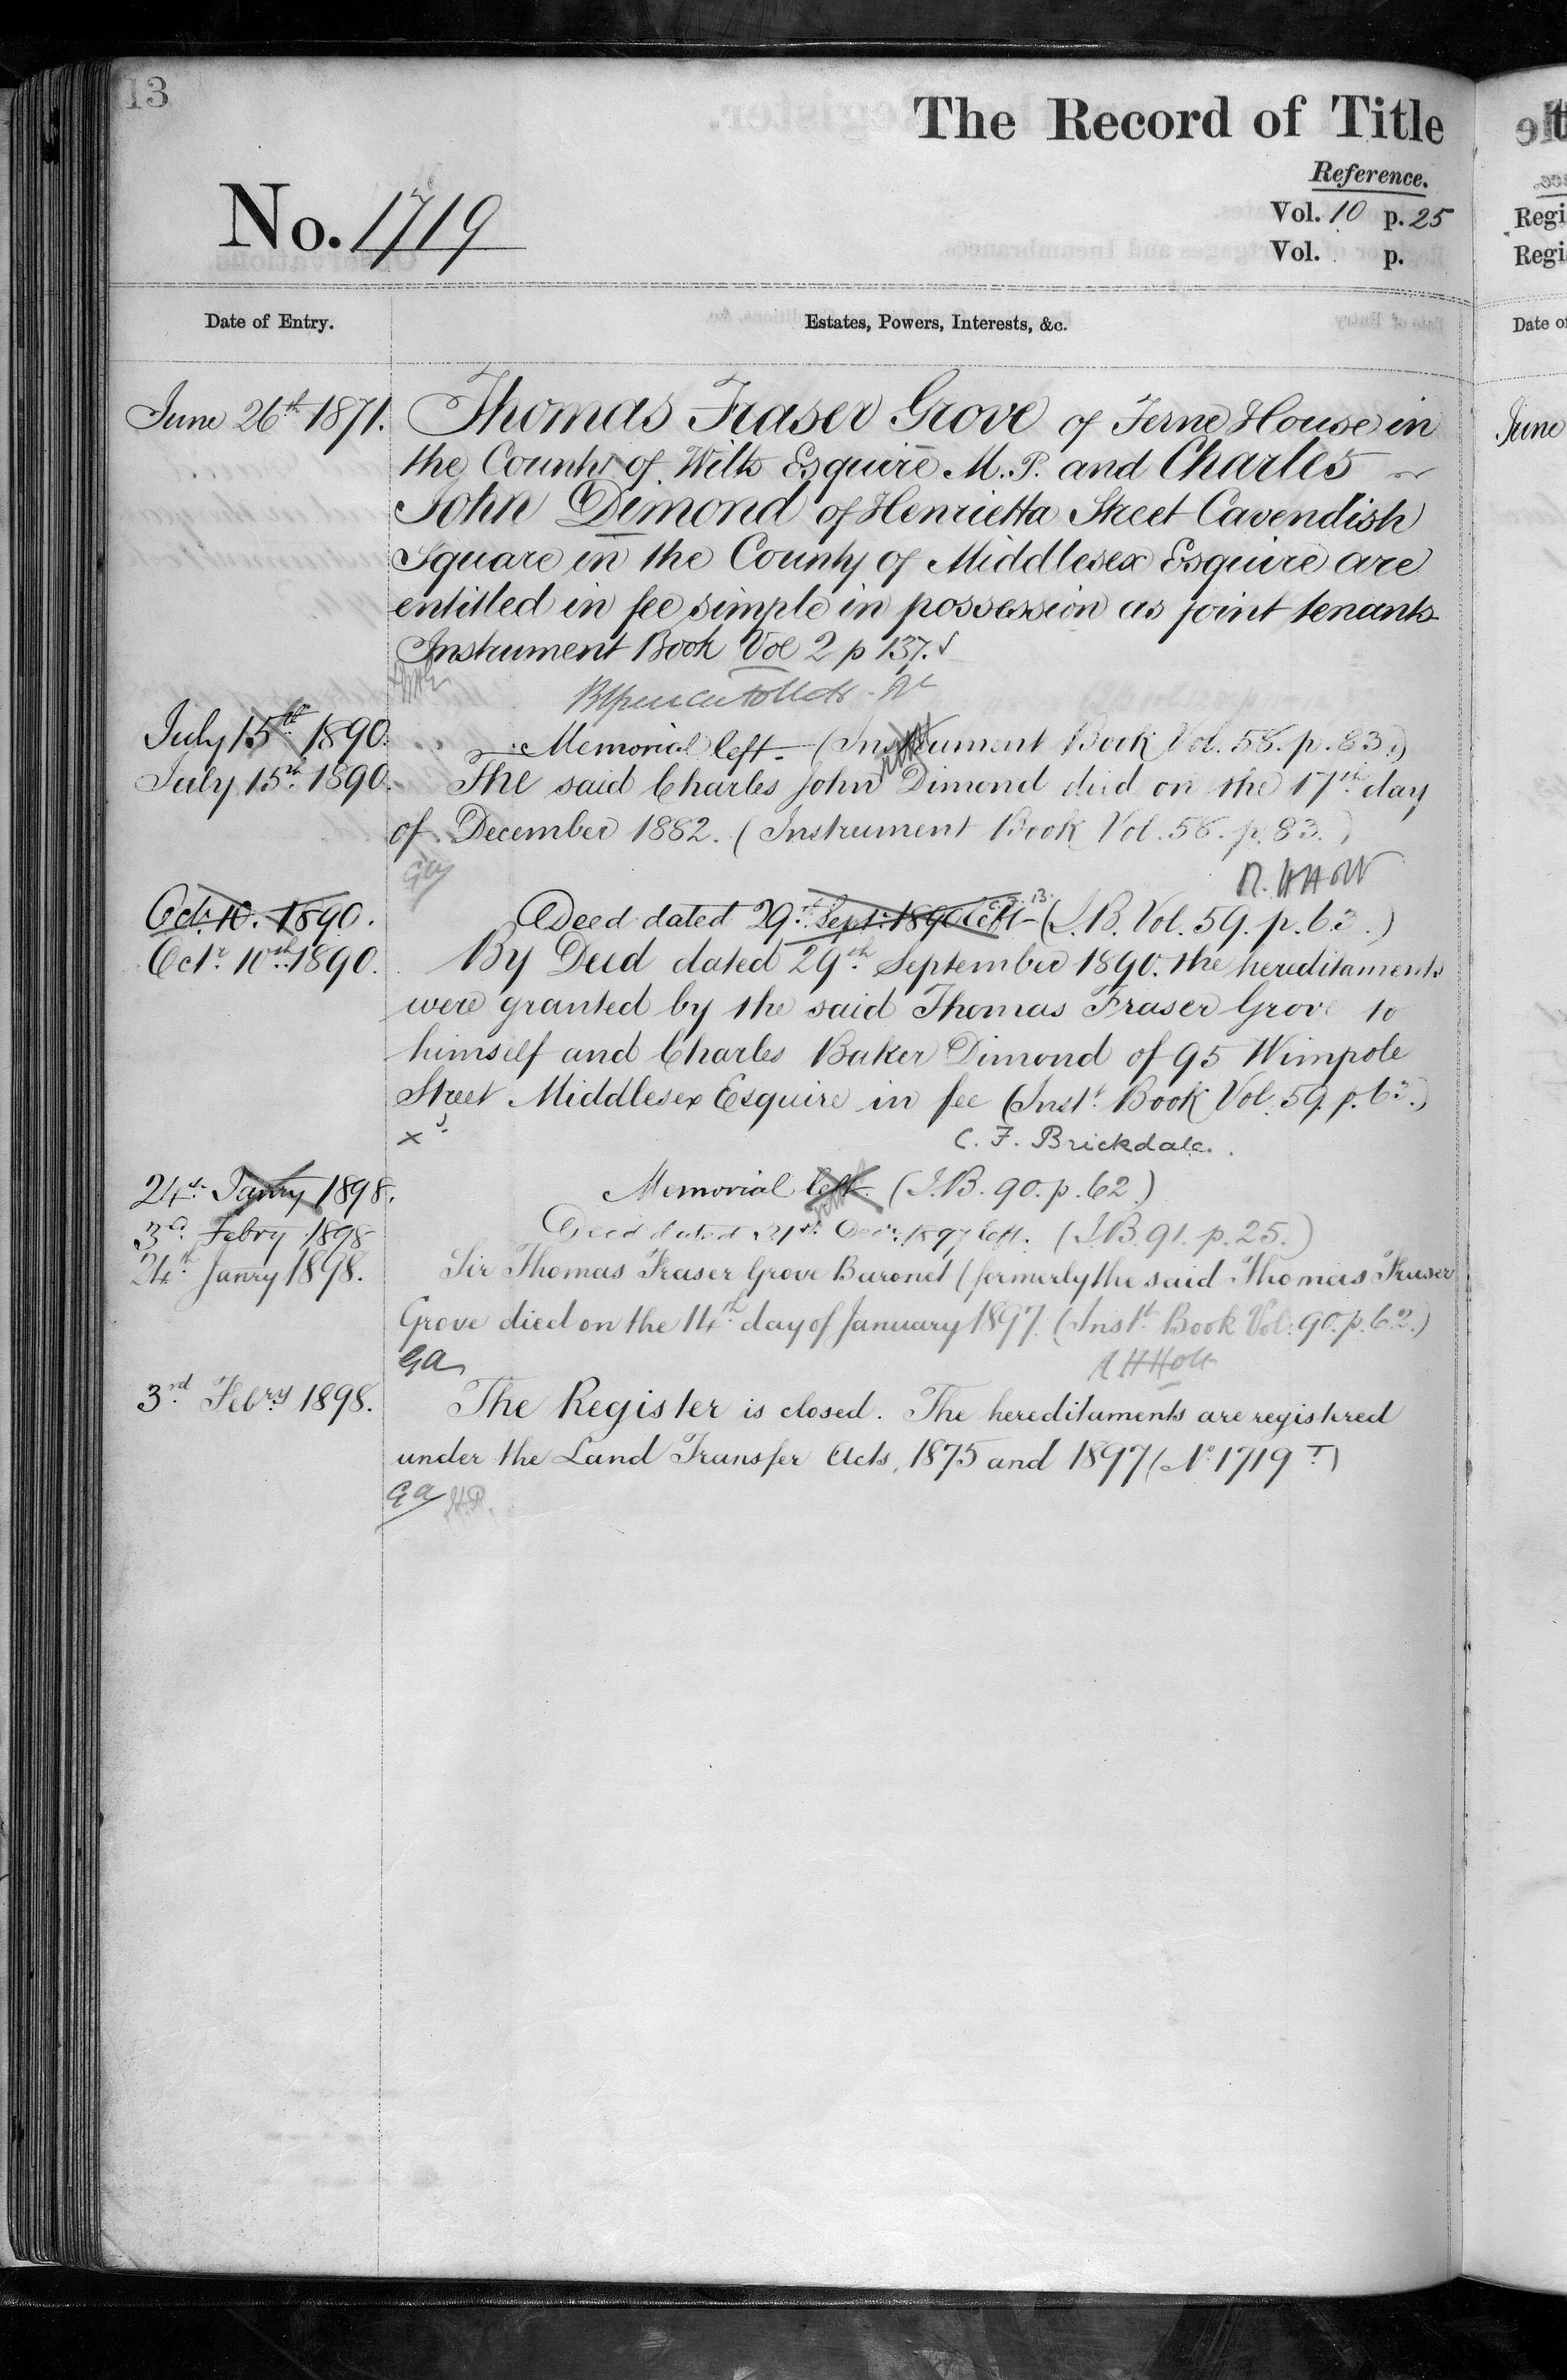 13
The Record of Title
Reference.
No. 1719
Vol. 10 p. 25
Vol. p.
Date of Entry.
Estates, Powers, Interests, &c.
June 26th 1871. Thomas Fraser Grove of Ferne House in
the County of Wilts Esquire M.P. and Charles
John Dimond of Henrietta Street Cavendish
Square in the County of Middlesex Esquire are
entitled in fee simple in possession as joint tenants
Instrument Book Vol 2 p 137.
July 15th 1890. Memorial left (Instrument Book Vol. 58. p. 83.)
July 15th 1890. The said Charles John Dimond died on the 17th day
of December 1882. (Instrument Book Vol. 58. p. 83.)
R. H Holt
Oct. 10. 1890. Deed dated 29th Sept. 1890 left (I.B. Vol. 59. p. 63.)
Octr. 10th 1890. By Deed dated 29th September 1890. the hereditaments
were granted by the said Thomas Fraser Grove to
himself and Charles Baker Dimond of 95 Wimpole
Street Middlesex Esquire in fee (Inst. Book Vol. 59. p. 63.)
x C. F. Brickdale.
24th Janry 1898. Memorial left. (I.B. 90. p. 62.)
3rd Febry 1898 Deed dated 21st Decr. 1897 left. (I.B. 91. p. 25.)
24th Janry 1898. Sir Thomas Fraser Grove Baronet (formerly the said Thomas Fraser
Grove died on the 14th day of January 1897. (Inst. Book Vol. 90. p. 62.)
GA R H Holt
3rd Febry 1898. The Register is closed. The hereditaments are registered
under the Land Transfer Acts, 1875 and 1897 (No. 1719 T)
GA H.P.
Regi
Regi
Date of
June